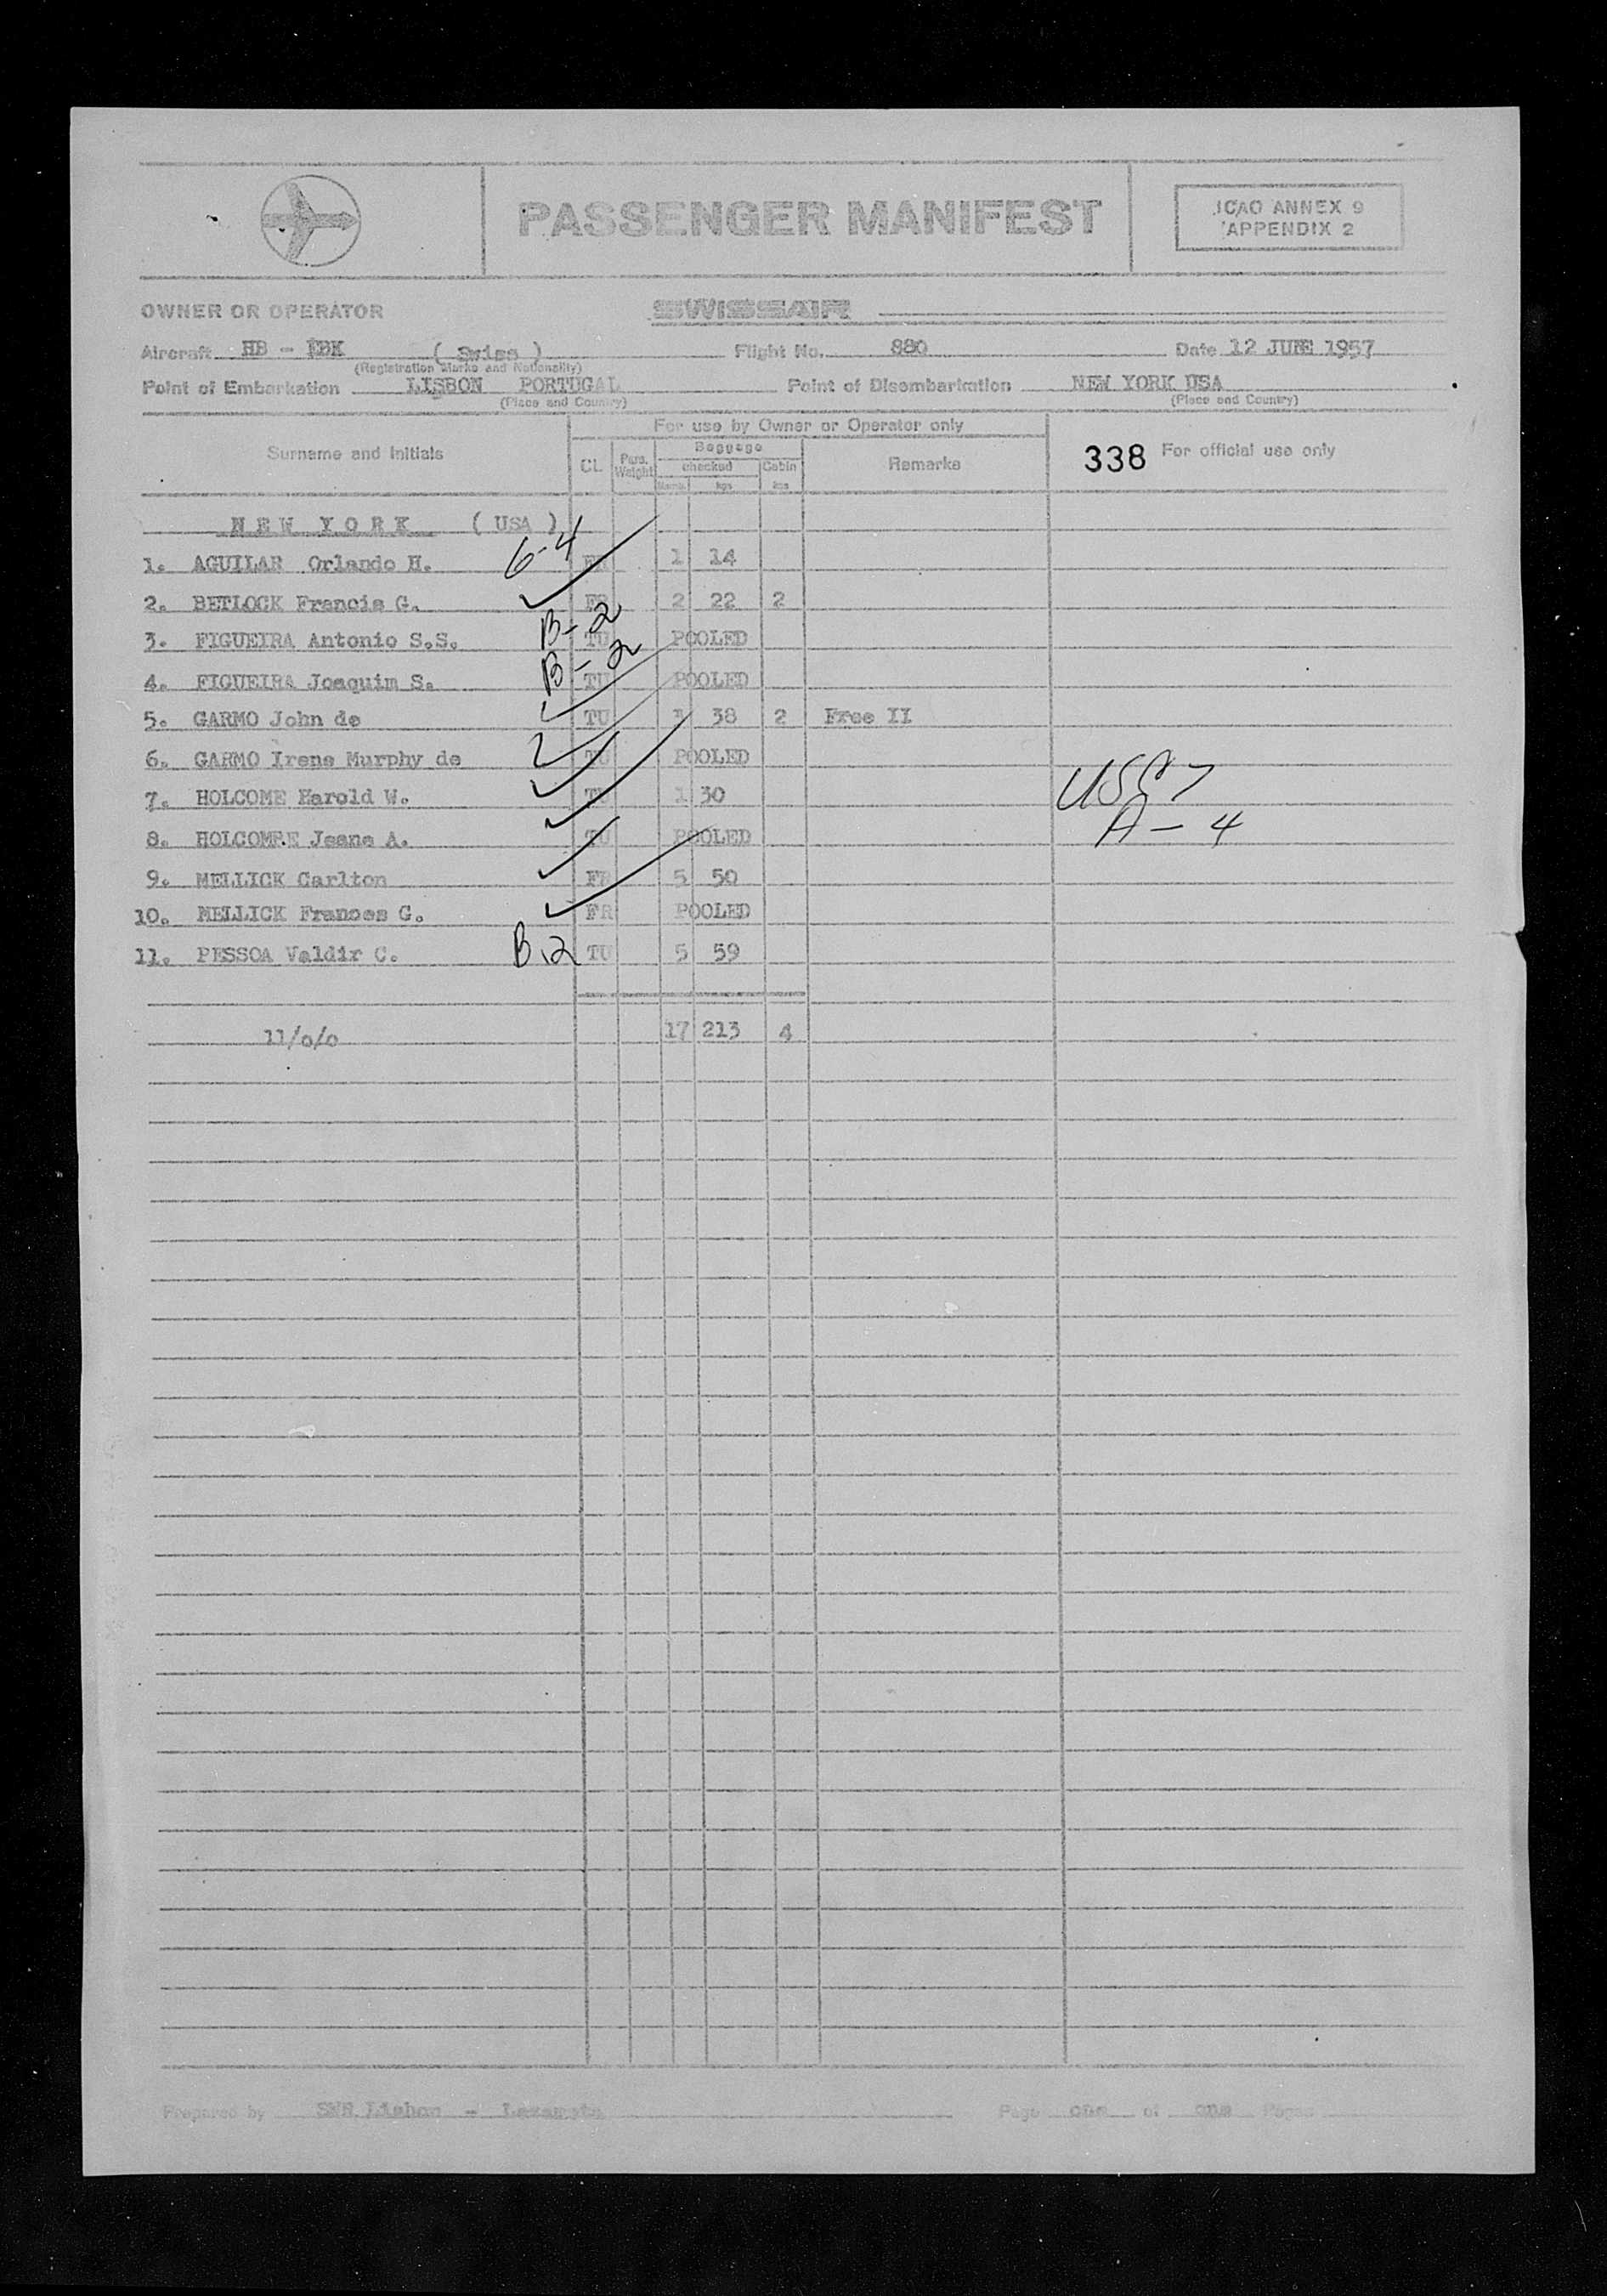 PASSENGER MANIFEST
ICAO ANNEX 9
APPENDIX 2
OWNER OR OPERATOR SWISSAIR
Aircraft HB - IBK (Swiss) Flight No. 880 Date 12 JUNE 1957
(Registration Marks and Nationality)
Point of Embarkation LISBON PORTUGAL Point of Disembarkation NEW YORK USA
(Place and Country) (Place and Country)
For use by Owner or Operator only
Surname and Initials CL Pass. Weight Baggage checked Cabin Remarks 338 For official use only
Numb. kgs kgs
NEW YORK (USA)
1. AGUILAR Orlando H. G-4 FR 1 14
2. BETLOCK Francis G. FR 2 22 2
3. FIGUEIRA Antonio S.S. B-2 TU POOLED
4. FIGUEIRA Joaquim S. B-2 TU POOLED
5. GARMO John de TU 38 2 Free II
6. GARMO Irene Murphy de TU POOLED
7. HOLCOME Harold W. TU 1 30 USC 7
8. HOLCOMBE Jeane A. TU POOLED A-4
9. MELLICK Carlton FR 5 50
10. MELLICK Frances G. FR POOLED
11. PESSOA Valdir C. B-2 TU 5 59
11/0/0 17 213 4
Prepared by SWR Lisbon - Page one of one Pages